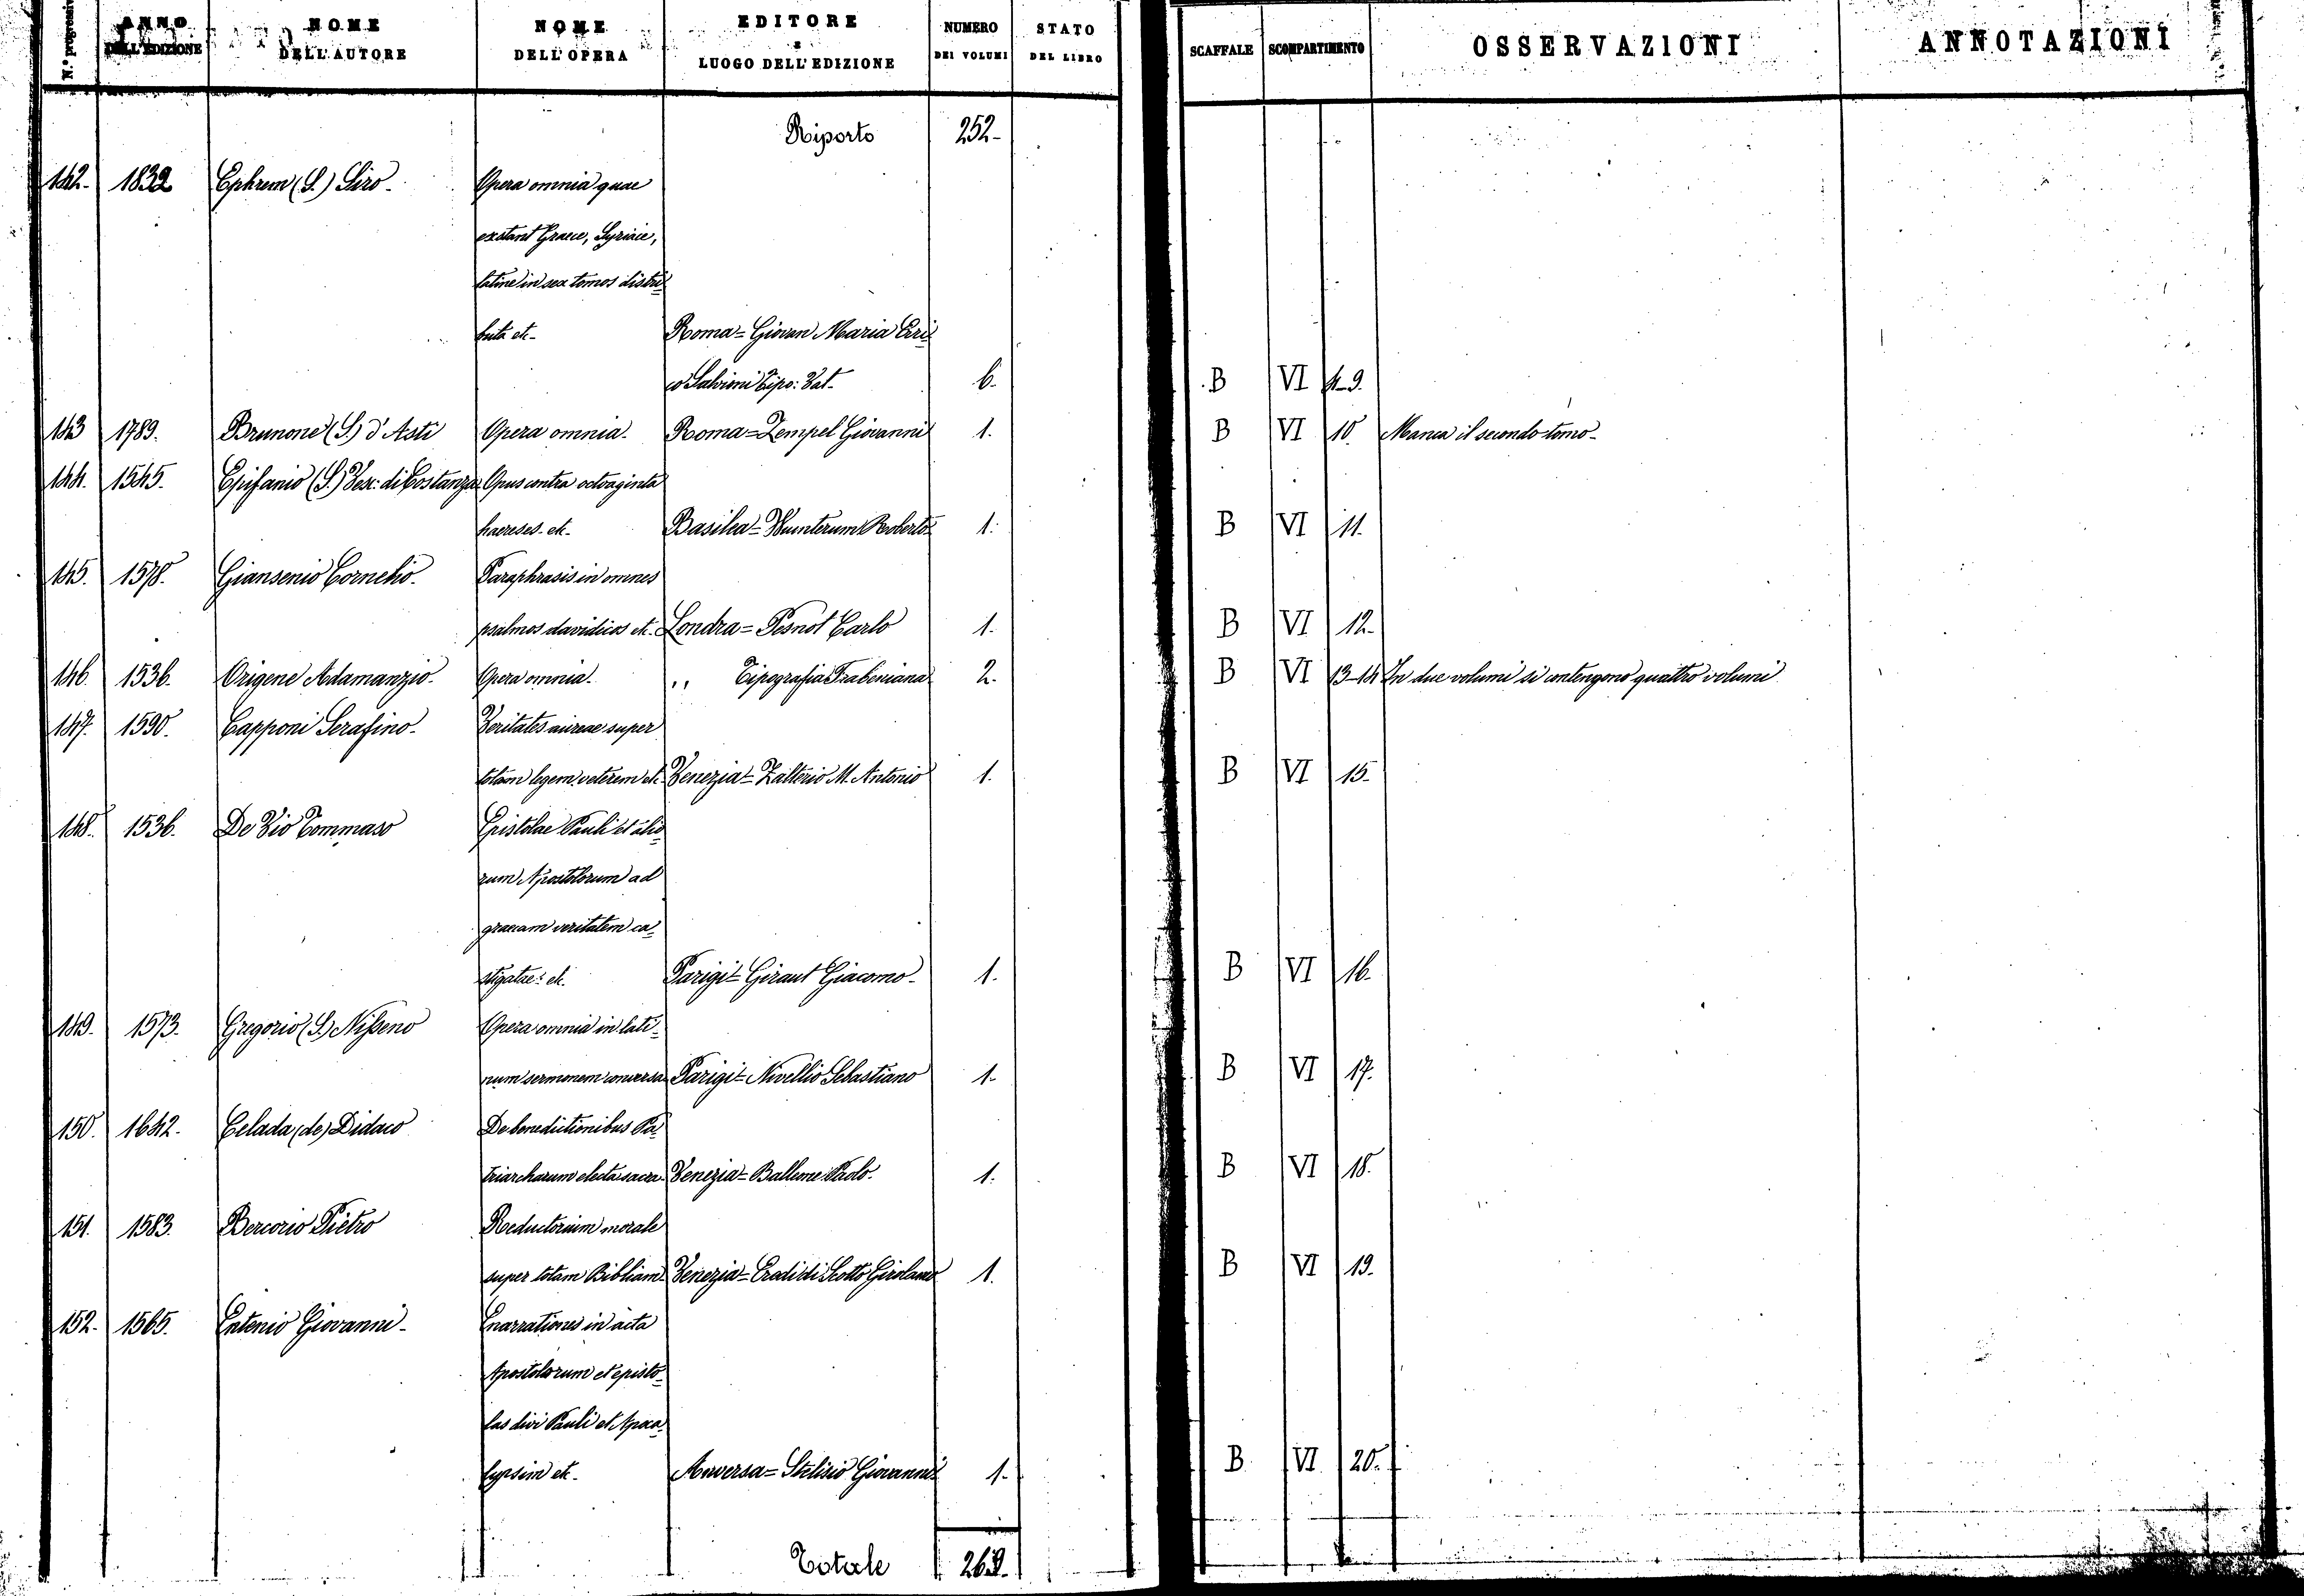 N.° progressivo ANNO DELL'EDIZIONE NOME DELL'AUTORE NOME DELL'OPERA EDITORE e LUOGO DELL'EDIZIONE NUMERO DEI VOLUMI STATO DEL LIBRO SCAFFALE SCOMPARTIMENTO OSSERVAZIONI ANNOTAZIONI
Riporto 252-
142. 1832 Ephrem (S.) Siro- Opera omnia quae
exstant Graece, Syriace,
latine in sex tomos distri=
buta etc- Roma= Giovan Maria Eri=
co Salvioni Tipo: Vat- 6. B VI 4-9.
143 1789. Brunone (S.) d'Asti Opera omnia- Roma=Zempel Giovanni 1. B VI 10. Manca il secondo tomo-
144. 1545. Epifanio (S.) Vesc: di Costanza Opus contra octoaginta
haereses- etc- Basilea= Wunterum Roberto= 1. B VI 11.
145. 1578. Giansenio Cornelio- Paraphrasis in omnes
psalmos davidicos etc- Londra= Pesnot Carlo 1. B VI 12.
146. 1536. Origene Adamanzio- Opera omnia- ,, Tipografia Trabeniana 2. B VI 13-14 In due volumi si contengono quattro volumi
147. 1590. Capponi Serafino- Veritates aureae super
totam legem veterem etc- Venezia= Zalterio M. Antonio 1. B VI 15.
148. 1536. De Vio Tommaso Epistolae Pauli et alio=
rum Apostolorum ad
graecam veritatem ca=
stigatae: etc. Parigi= Giraut Giacomo- 1. B VI 16.
149. 1573. Gregorio (S.) Nisseno Opera omnia in lati-
num sermonem conversa Parigi= Nivellio Sebastiano 1. B VI 17.
150. 1642. Celada (de) Didaco De benedictionibus Pa=
triarcharum electa sacra- Venezia= Balleone Paolo- 1. B VI 18.
151. 1583. Bercorio Pietro Reductorium morale
super totam Bibliam Venezia= Eredi di Scotto Girolamo 1. B VI 19.
152. 1565. Entenio Giovanni- Enarrationes in acta
Apostolorum et episto-
las divi Pauli et Apoca=
lypsim etc- Anversa= Stelisio Giovanni 1. B VI 20.
Totale 269.